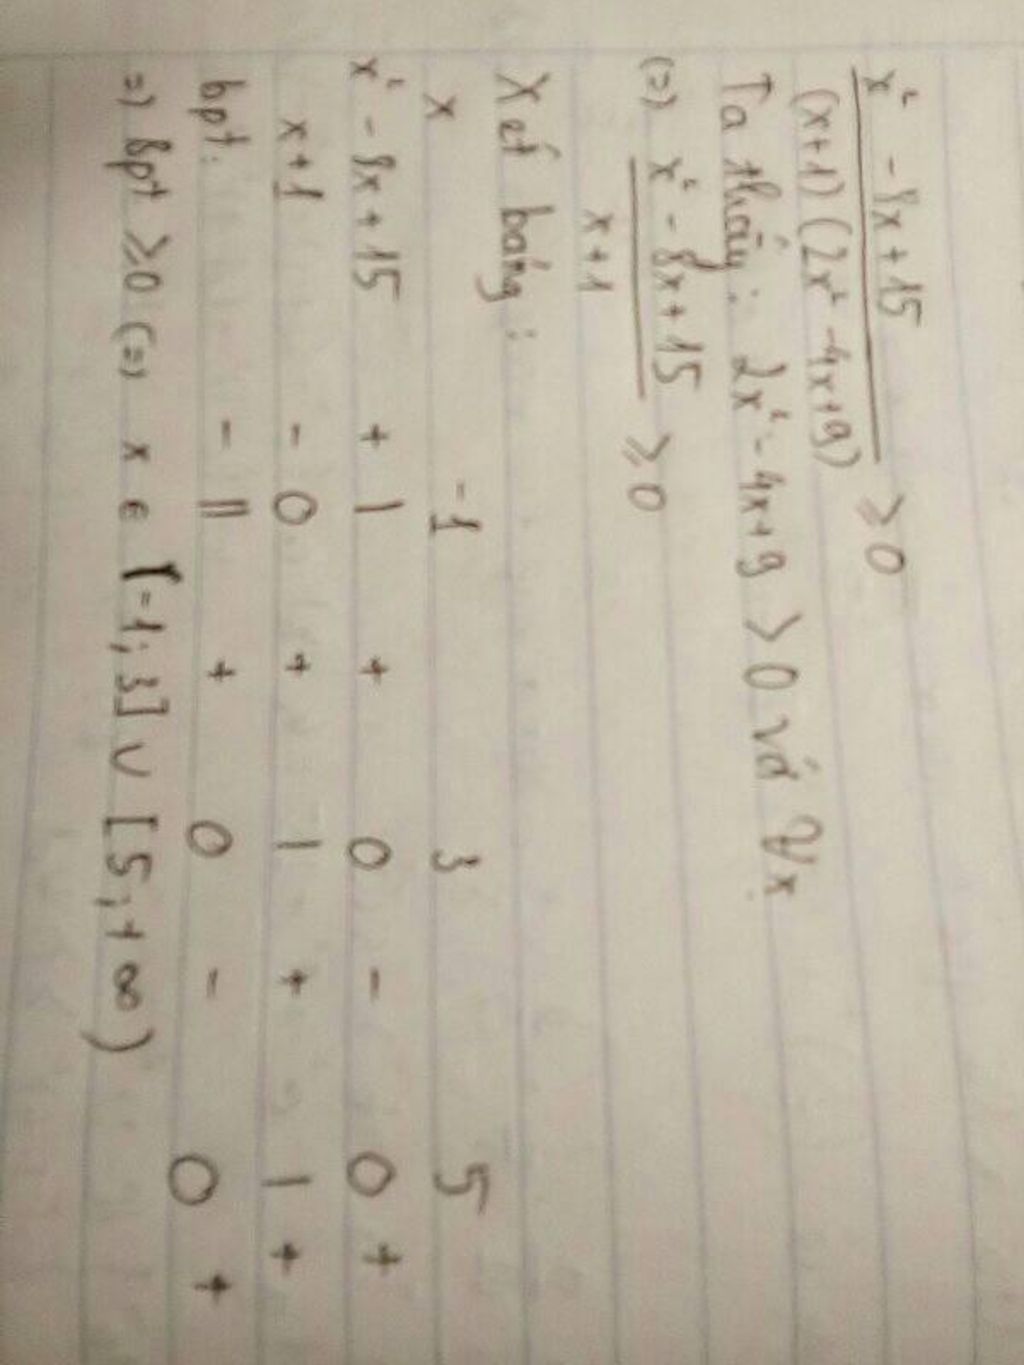 x² - 8x + 15
(x+1)(2x² - 4x+9) ≥ 0
Ta thấy: 2x² - 4x+9 > 0 vớ ∀x
(=) x² - 8x + 15
x+1 ≥ 0
Xét bảng:
x -1 3 5
x² - 8x + 15 + | + 0 - 0 +
x+1 - 0 + | + | +
bpt: - || + 0 - 0 +
=) Bpt ≥ 0 (=) x ∈ (-1; 3] ∪ [5; +∞)